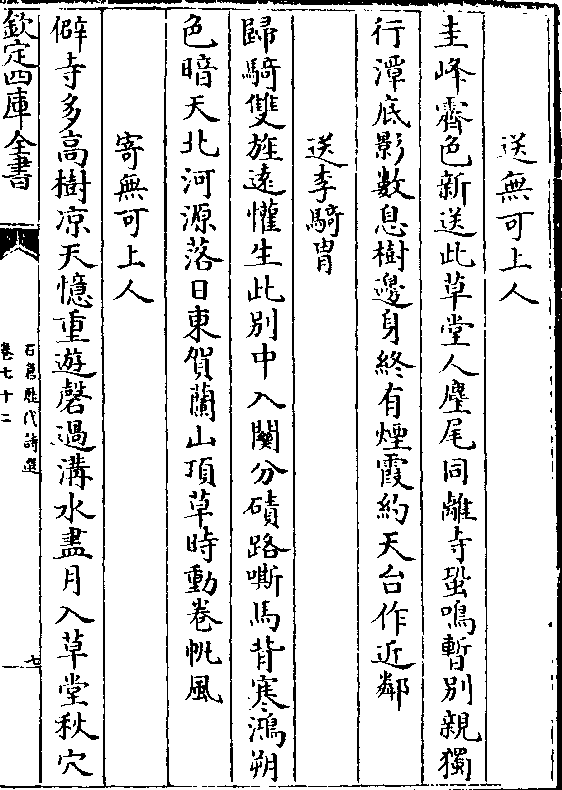 送無可上人
圭峰霽色新送此草堂人麈尾同離寺蛩鳴暫別親獨
行潭底影數息樹邊身終有煙霞約天台作近鄰
送李騎胄
歸騎雙旌遠懽生此別中入關分磧路嘶馬背寒鴻朔
色暗天北河源落日東賀蘭山頂草時動卷帆風
寄無可上人
僻寺多高樹凉天憶重遊磬過溝水盡月入草堂秋穴
欽定四庫全書
石倉歷代詩選
卷七十二
七